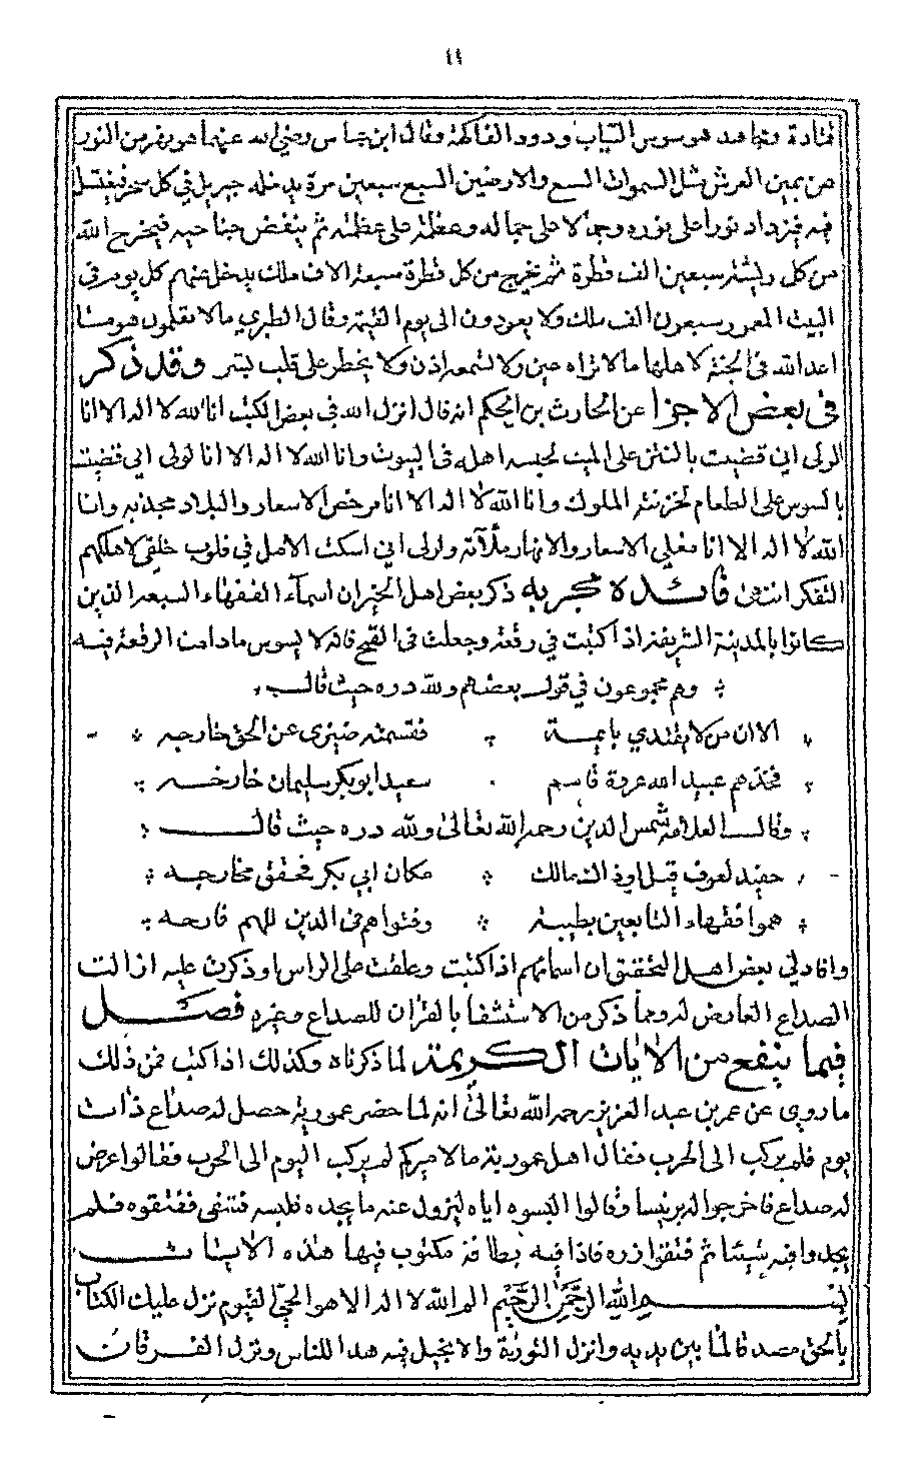 ٤٤
قتادة ومجاهد هو سوس الثياب ودود الفاكهة وقال ابن عباس رضي الله عنهما هو نهر من النور
عن يمين العرش مثل السموات السبع والارضين السبع سبعين مرة يدخله جبريل في كل سحر فيغتسل
فيه فيزداد نورا على نوره وجمالا على جماله وعظمة على عظمته ثم ينتفض جناحيه فيخرج الله
من كل ريشة سبعين الف قطرة ثم يخرج من كل قطرة سبعة الاف ملك يدخل منهم كل يوم في
البيت المعمور سبعون الف ملك ولا يعودون الى يوم القيمة وقال الطبري مالا تعلمون هو ما
اعد الله في الجنة لاهلها مالا تراه عين ولا تسمعه اذن ولا يخطر على قلب بشر وقد ذكر
في بعض الاجزا عن الحارث بن الحكم انه قال انزل الله في بعض الكتب انا الله لا اله الا انا
لولى اني قضيت بالنتن على الميت لحبسه اهله في البيوت وانا الله لا اله الا انا لولى اني قضيت
بالسوس على الطعام لخزنته الملوك وانا الله لا اله الا انا مرخص الاسعار والبلاد مجدبه وانا
الله لا اله الا انا مغلي الاسعار والانهار ملآنه ولولى اني اسكنت الامل في قلوب خلقي لاهلكهم
التفكر انتهى فائدة لا تجربه ذكر بعض اهل الخير ان اسماء الفقهاء السبعه الذين
كانوا بالمدينة الشريفه اذا كتبت في رقعة وجعلت في القمح فانه لا يسوس مادامت الرقعة فيه
وهم مجموعون في قول بعضهم ولله دره حيث قال
الا ان من لا يقتدي بايمة فقسمته ضيزى عن الحق خارجه
فخذهم عبيد الله عروة قاسم سعيد ابو بكر سليمان خارجه
وقال العلامة شمس الدين رحمه الله تعالى ولله دره حيث قال
مكان ابي بكر فحقق مخارجه
هموا فقهاء التابعين بطيبة وفتواهم في الدين للهم فارجه
وافادني بعض اهل التحقيق ان اسمائهم اذا كتبت وعلقت على الراس او ذكرت عليه ازالت
الصداع العارض له وما ذكر من الاستشفا بالقران للصداع وغيره فصل
فيما ينفع من الايات الكريمة لما ذكرناه وكذلك اذا كتب فمن ذلك
ما روي عن عمر بن عبد العزيز رحمه الله تعالى انه لما حضر عمورية حصل له صداع ذات
يوم فلم يركب الى الحرب فقال اهل عمورية مالاميركم لم يركب اليوم الى الحرب فقالوا عرض
له صداع فاخرجوا له برنسا وقالوا البسوه اياه ليزول عنه ما يجده فلبسه فشفى ففتقوه فلم
يجدوا فيه شيئا ثم فتقوا زره فاذا فيه بطاقة مكتوب فيها هذه الايات
بسم الله الرحمن الرحيم الم الله لا اله الا هو الحي القيوم نزل عليك الكتاب
بالحق مصدقا لما بين يديه وانزل التورية والانجيل فيه هدا للناس ونزل الفرقان